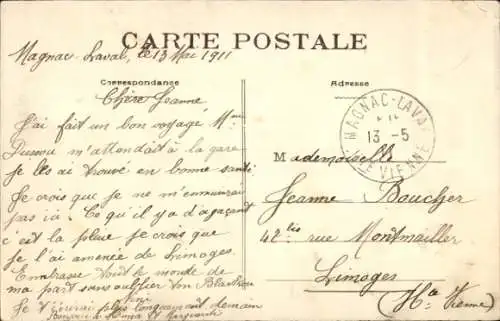 CARTE POSTALE
Magnac-Laval, le 13 Mai 1911
Correspondance
Adresse
Chère Jeanne
J'ai fait un bon voyage Mme
m'attendait à la gare
je les ai trouvé en bonne santé
Je crois que je ne m'ennuirai
pas ici. Ce qu'il y a d'agaçant
c'est la pluie je crois que
je l'ai amenée de Limoges.
Embrasse tout le monde de
ma part sans oublier ton
Je t'écrirai plus longuement demain
MAGNAC-LAVAL
13-5
HTE VIENNE
Mademoiselle
Jeanne Boucher
42 bis rue Montmailler
Limoges
(Hte Vienne)